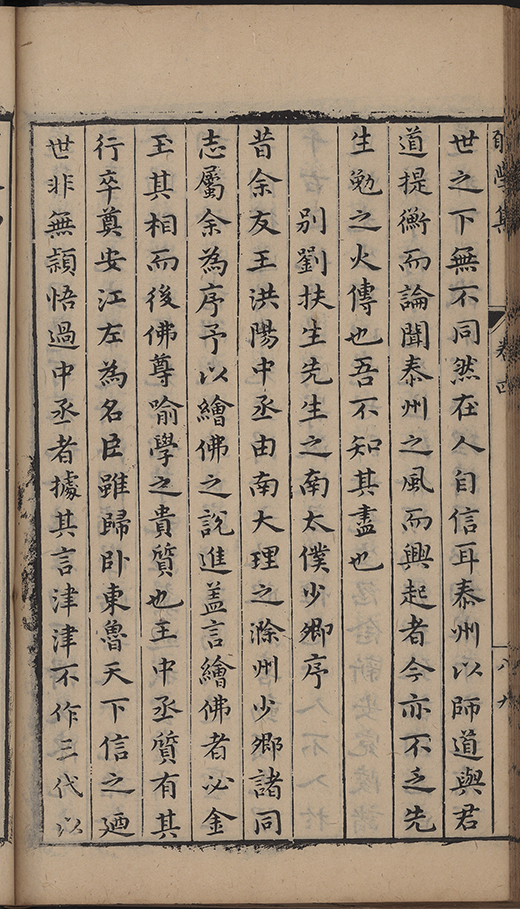 學集
卷四
八九
世之下無不同然在人自信耳泰州以師道與君
道提衡而論聞泰州之風而興起者今亦不乏先
生勉之火傳也吾不知其盡也
別劉扶生先生之南太僕少卿序
昔余友王洪陽中丞由南大理之滁州少卿諸同
志屬余為序予以繪佛之說進盖言繪佛者必金
玉其相而後佛尊喻學之貴質也王中丞質有其
行卒奠安江左為名臣雖歸卧東魯天下信之廼
世非無頴悟過中丞者據其言津津不作三代以